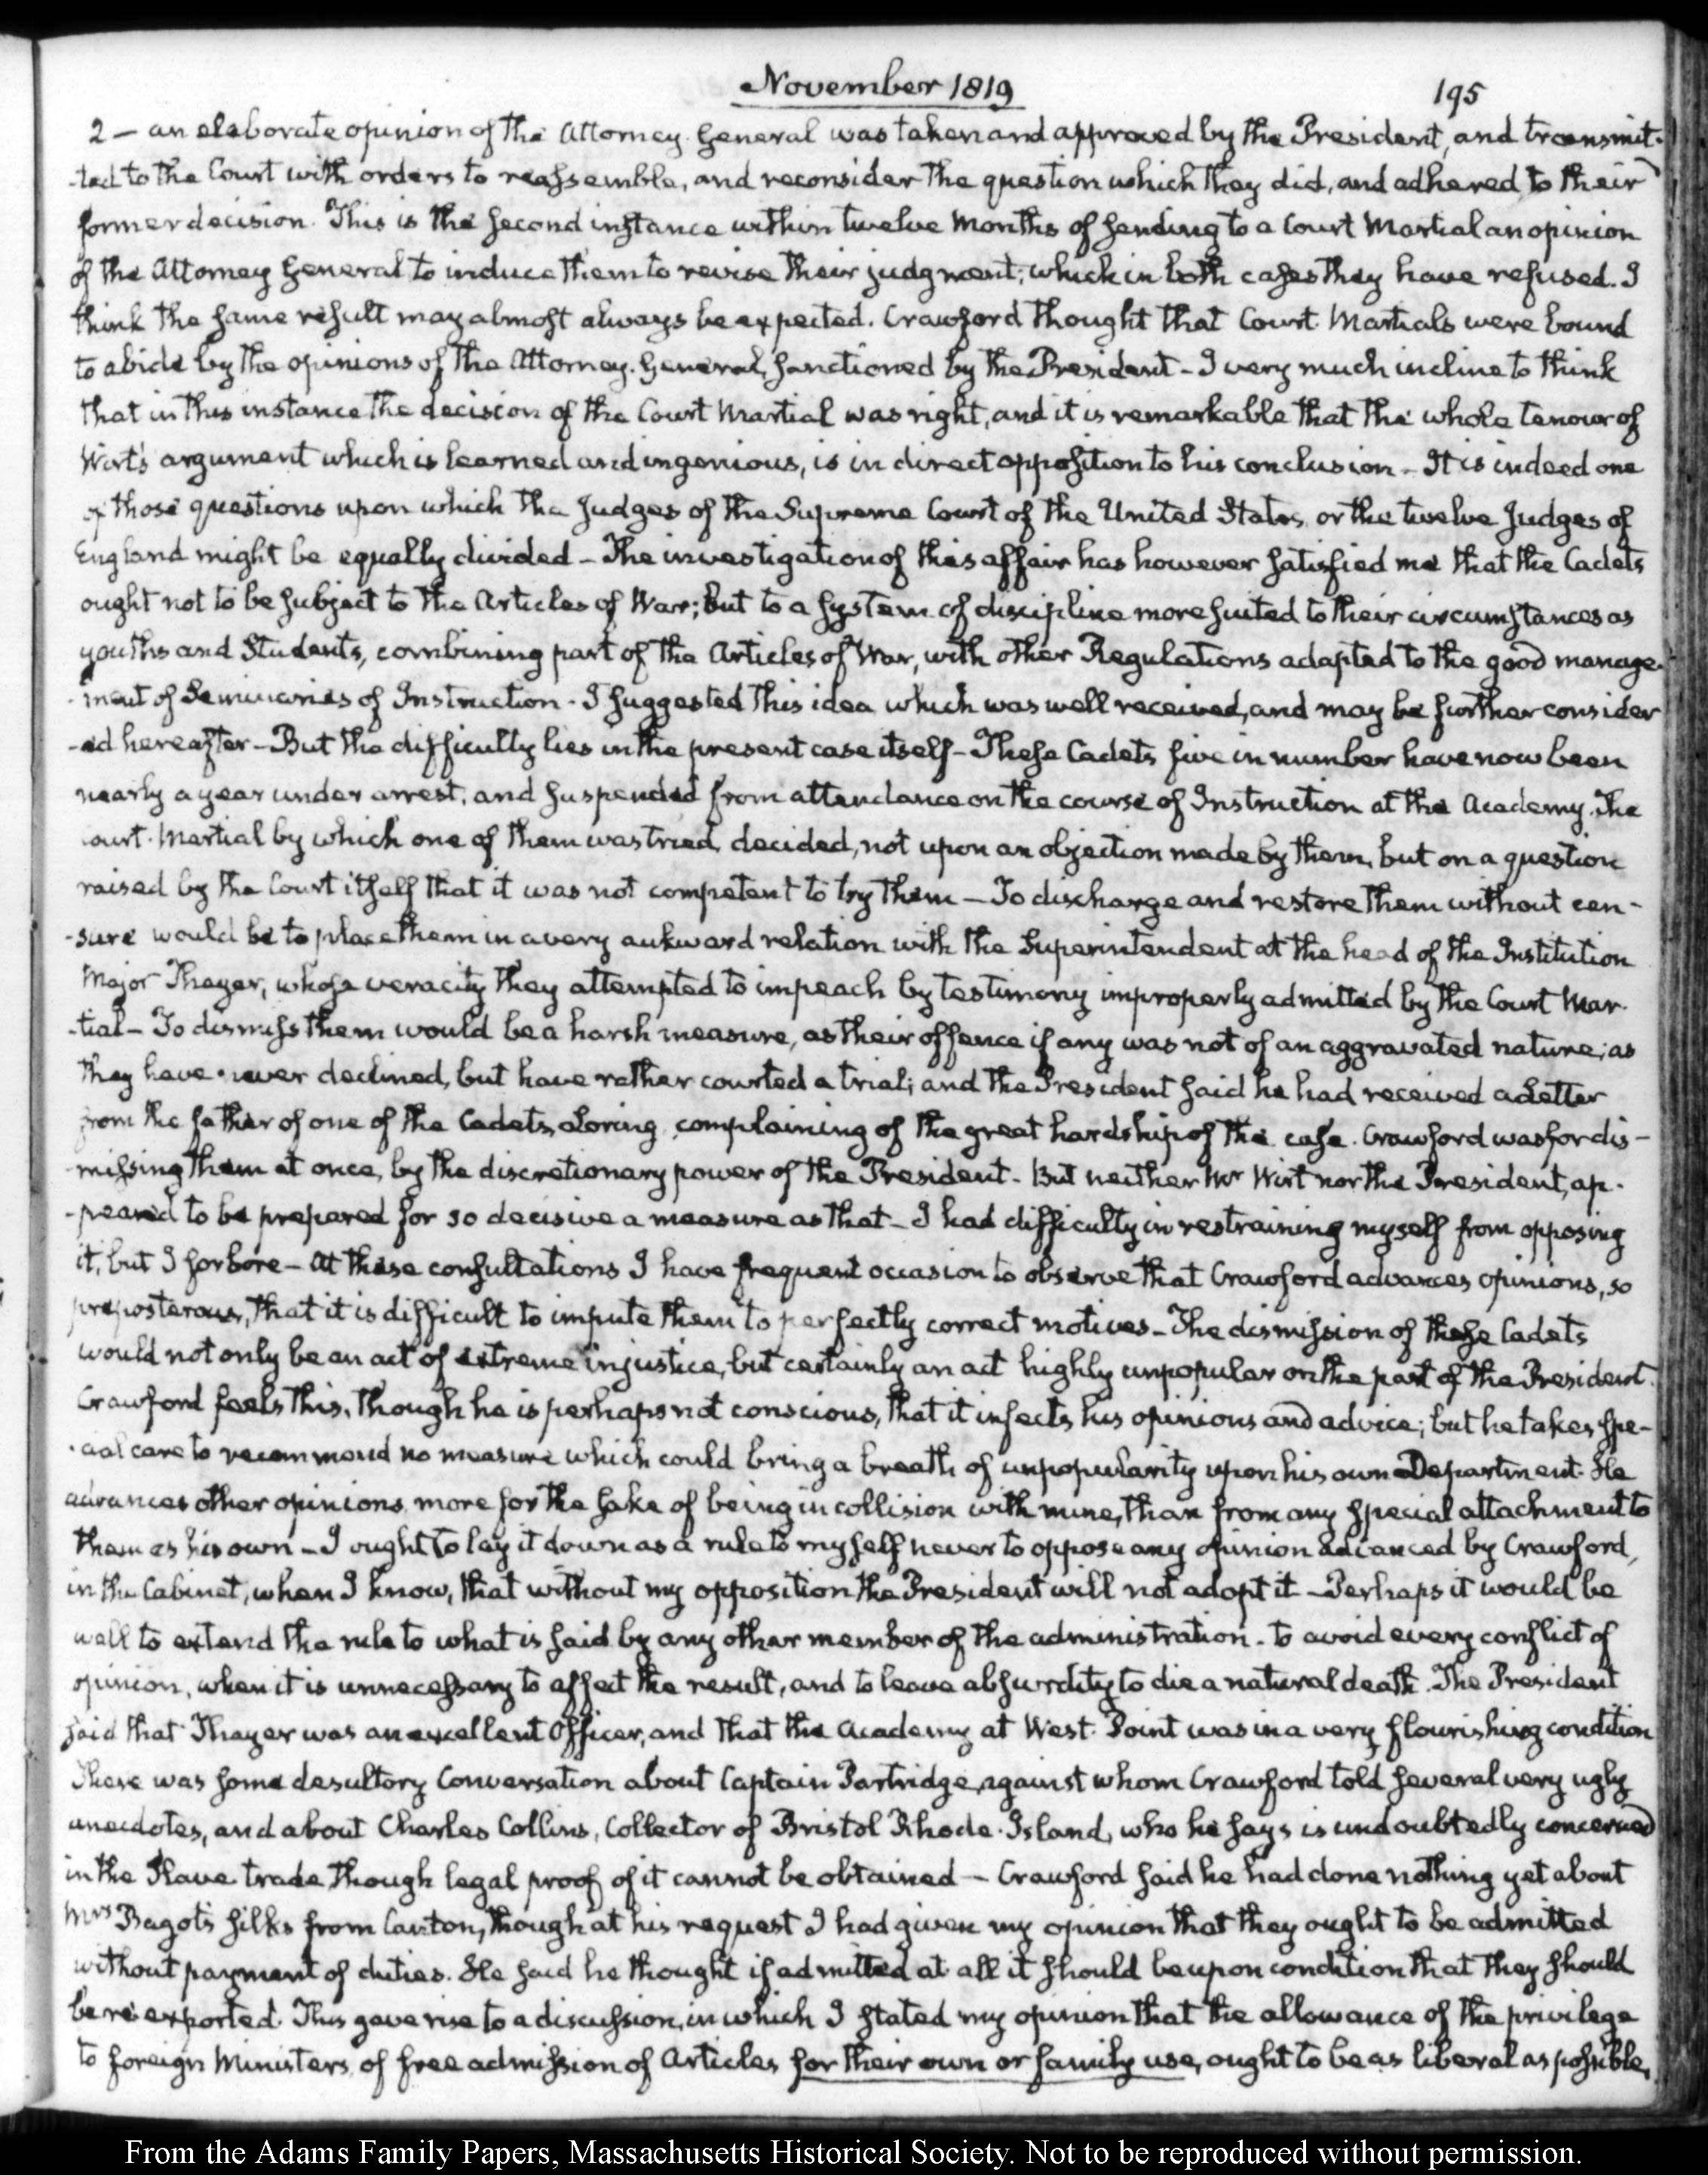 November 1819
195
2 — an elaborate opinion of the Attorney General was taken and approved by the President, and transmit-
-ted to the Court with orders to reassemble, and reconsider the question which they did, and adhered to their
former decision. This is the second instance within twelve Months of sending to a Court Martial an opinion
of the Attorney General to induce them to revise their judgment; which in both cases they have refused. I
think the same result may almost always be expected. Crawford thought that Court Martials were bound
to abide by the opinions of the Attorney General, sanctioned by the President - I very much incline to think
that in this instance the decision of the Court Martial was right, and it is remarkable that the whole tenour of
Wirt's argument which is learned and ingenious, is in direct opposition to his conclusion - It is indeed one
of those questions upon which the Judges of the Supreme Court of the United States, or the twelve Judges of
England might be equally divided - The investigation of this affair has however satisfied me that the Cadets
ought not to be subject to the Articles of War; but to a system of discipline more suited to their circumstances as
youths and Students, combining part of the Articles of War, with other Regulations adapted to the good manage-
-ment of Seminaries of Instruction - I suggested this idea which was well received, and may be further consider
-ed hereafter - But the difficulty lies in the present case itself - These Cadets five in number have now been
nearly a year under arrest, and suspended from attendance on the course of Instruction at the Academy. The
Court-Martial by which one of them was tried, decided, not upon an objection made by them, but on a question
raised by the Court itself that it was not competent to try them - To discharge and restore them without cen-
-sure would be to place them in a very aukward relation with the Superintendent at the head of the Institution
Major Thayer, whose veracity they attempted to impeach by testimony improperly admitted by the Court Mar-
-tial - To dismiss them would be a harsh measure, as their offence if any was not of an aggravated nature; as
they have never declined, but have rather courted a trial; and the President said he had received a Letter
from the father of one of the Cadets, Loring, complaining of the great hardship of the case. Crawford was for dis-
-missing them at once, by the discretionary power of the President - But neither Mr Wirt nor the President, ap-
-peared to be prepared for so decisive a measure as that - I had difficulty in restraining myself from opposing
it, but I forbore - At these consultations I have frequent occasion to observe that Crawford advances opinions, so
preposterous, that it is difficult to impute them to perfectly correct motives - The dismission of these Cadets
would not only be an act of extreme injustice, but certainly an act highly unpopular on the part of the President.
Crawford feels this, though he is perhaps not conscious, that it infects his opinions and advice; but he takes spe-
-cial care to recommend no measure which could bring a breath of unpopularity upon his own Department. He
advances other opinions more for the sake of being in collision with mine, than from any special attachment to
them as his own - I ought to lay it down as a rule to myself never to oppose any opinion advanced by Crawford,
in the Cabinet, when I know, that without my opposition the President will not adopt it - Perhaps it would be
well to extend the rule to what is said by any other member of the administration - to avoid every conflict of
opinion, when it is unnecessary to affect the result, and to leave absurdity to die a natural death. The President
said that Thayer was an excellent Officer, and that the Academy at West-Point was in a very flourishing condition
There was some desultory Conversation about Captain Partridge, against whom Crawford told several very ugly
anecdotes, and about Charles Collins, Collector of Bristol Rhode-Island, who he says is undoubtedly concerned
in the Slave trade, though legal proof of it cannot be obtained — Crawford said he had done nothing yet about
Mrs Bagot's silks from Canton, though at his request I had given my opinion that they ought to be admitted
without payment of duties. He said he thought if admitted at all it should be upon condition that they should
be re-exported. This gave rise to a discussion, in which I stated my opinion that the allowance of the privilege
to foreign Ministers, of free admission of Articles for their own or family use, ought to be as liberal as possible,
From the Adams Family Papers, Massachusetts Historical Society. Not to be reproduced without permission.